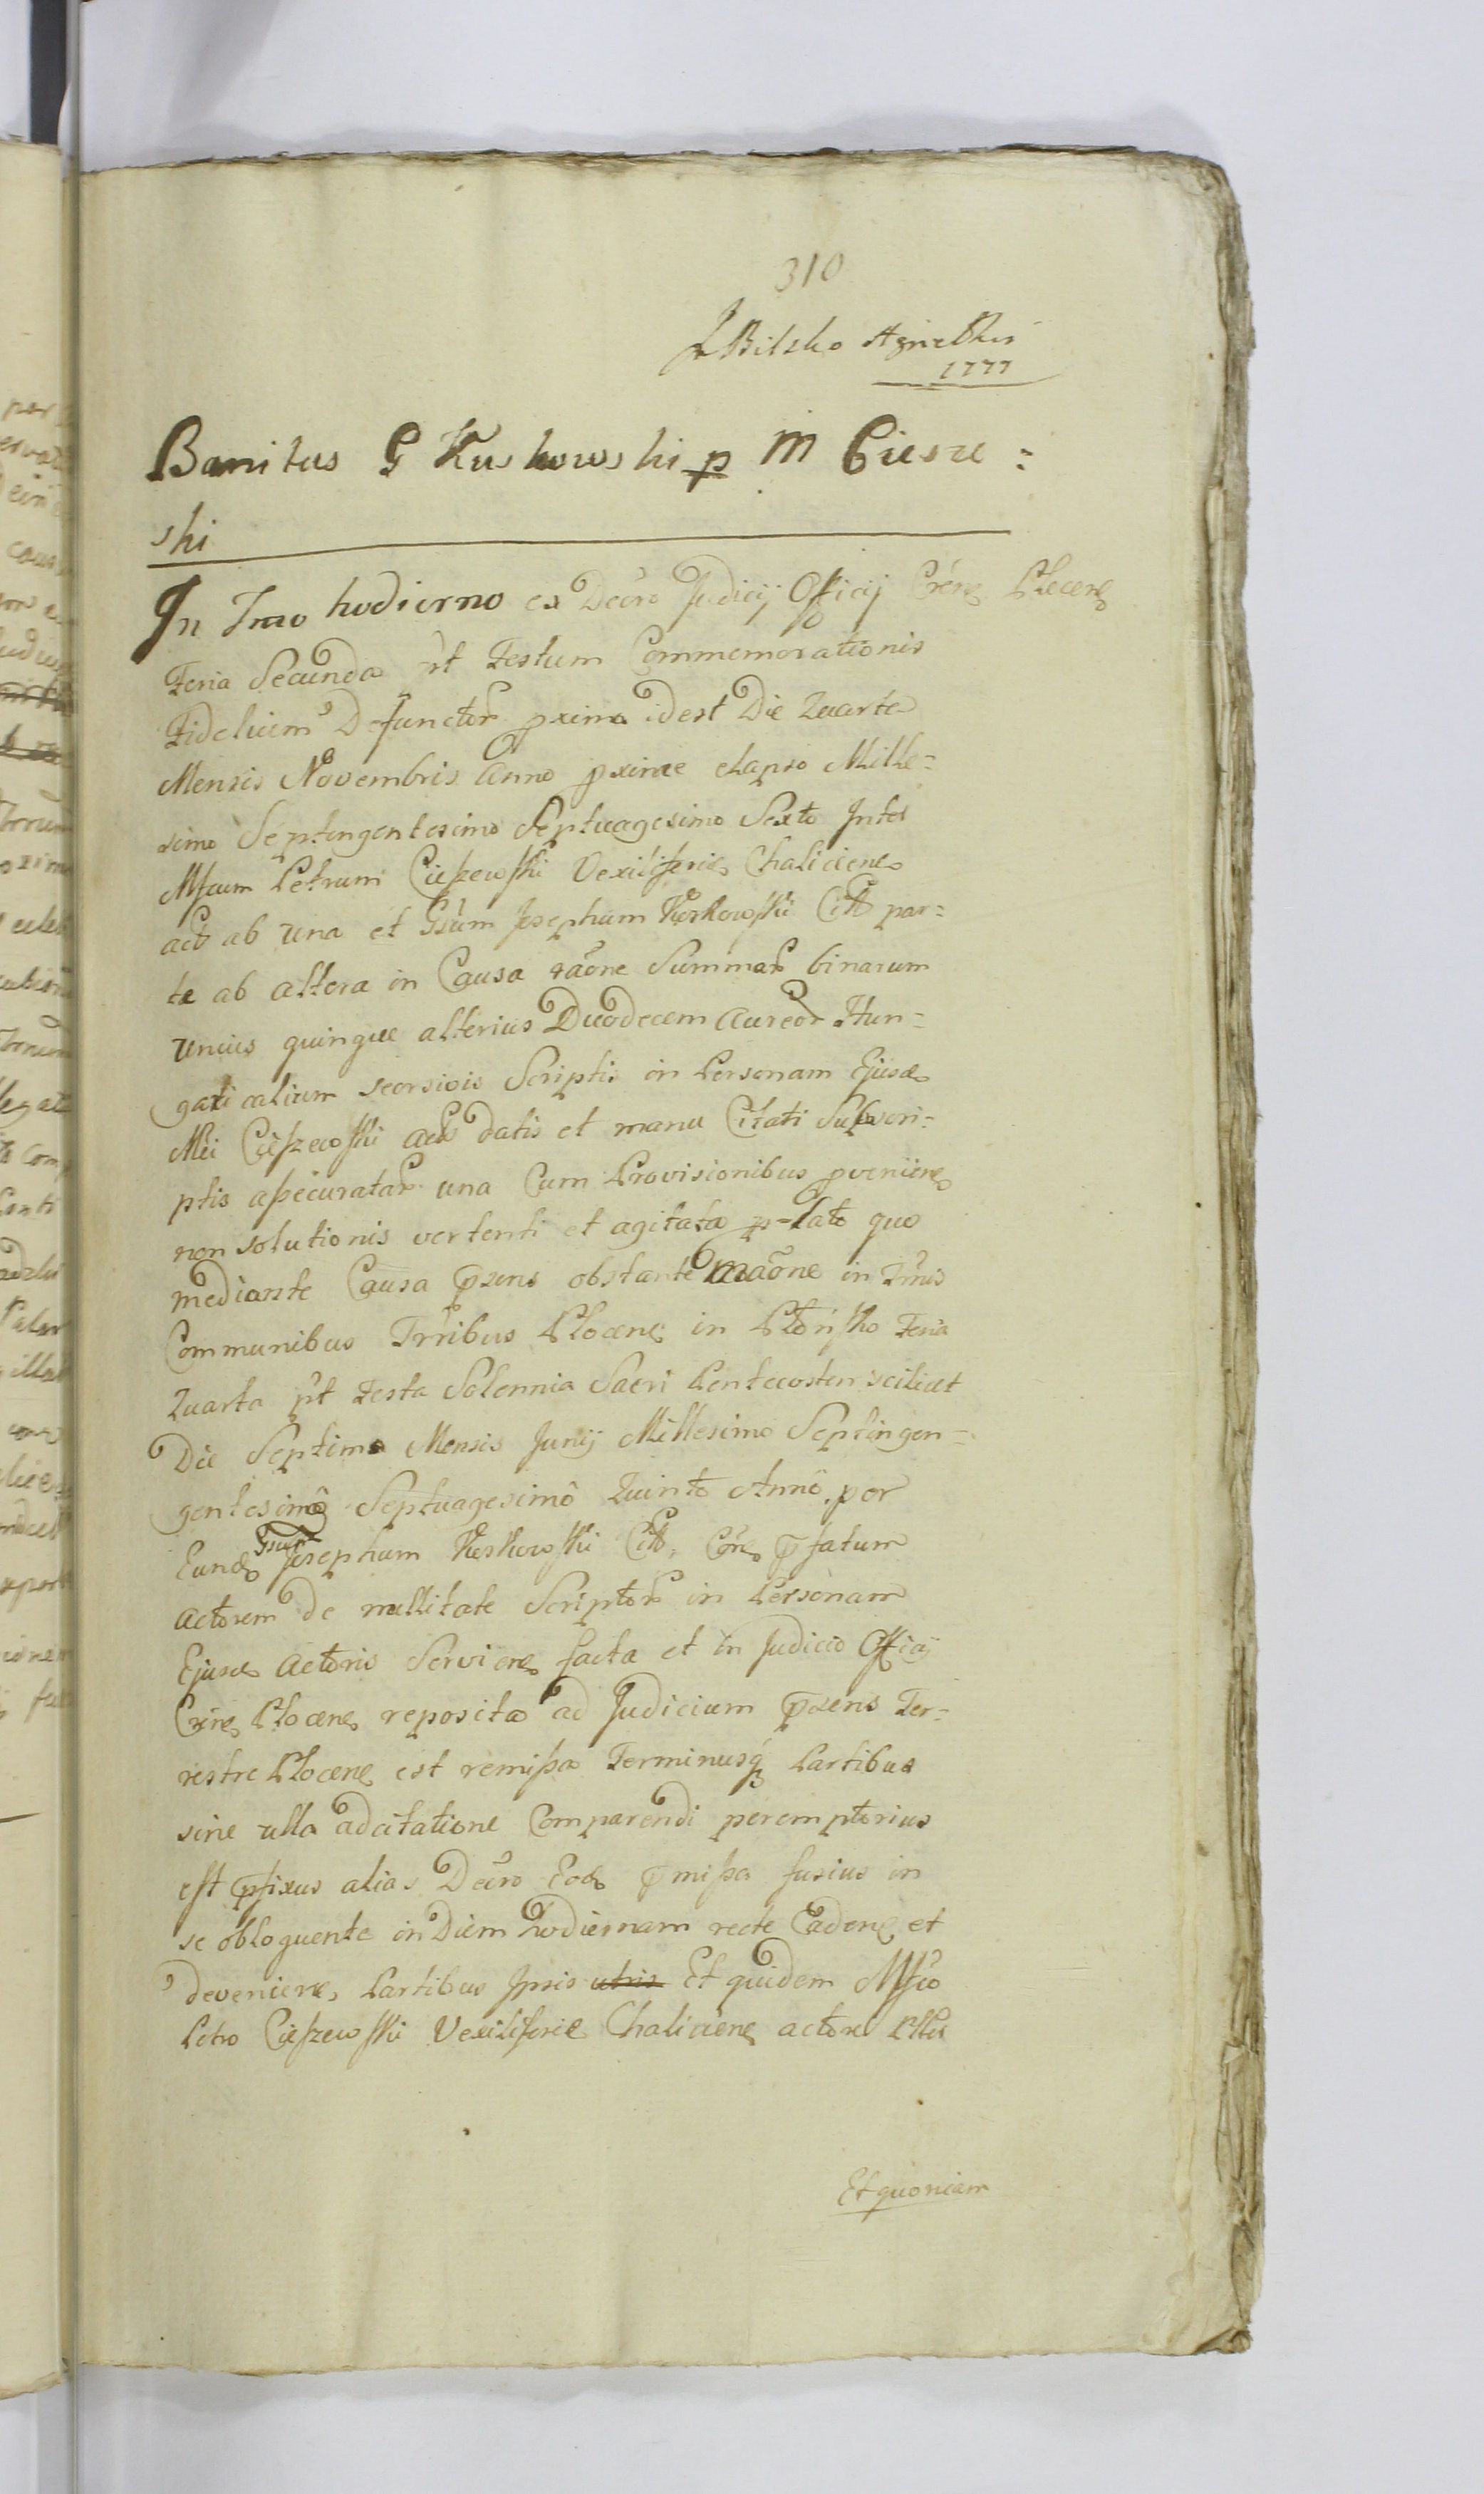 310
Bilsko Agnetkis
1777
Banitus G Kuskowski p M Ciesze:
ski
In Tmo hodierno ex Decro Judicij Officij Crens Plocens
Feria Secunda pt Festum Commemorationis
Fidelium Defunctor pxima idest Die Quarta
Mensis Novembris Anno pxime elapso Mille-
simo Septengentesimo Septuagesimo Sexto Inter
Mfcum Petrum Cieszewski Vexiliferid Chalicien
act ab una et Gsum Josephum Kuskowski Citt par-
te ab altera in Causa raone Summar binarum
Unius quinque alterius Duodecem Aureor Hun-
garicalium seorsivis Scriptis in Personam Ejusd
Mci Cieszewski act datis et manu Citati Subscri-
ptis assecuratar una Cum Provisionibus pveniens
non solutionis vertenti et agitata p-lato quo
mediante Causa psens obstante maone in Tmis
Communibus Trribus Plocens in Feria
Quarta pt Festa Solennia Sacri Pentecosten scilicet
Die Septima Mensis Junij Millesimo Septingen-
gentesimo Septuagesimo Quinto Anno per
Eund Gsum Josephum Kuskowski Citt Con pfatum
Actorem de nullitate Scriptor in Personam
Ejusd Actoris Serviens facta et in Judicio Officij
Crens Plocens reposita ad Judicium psens Ter-
restre Plocens est remissa Terminusq Partibus
sine ulla adcitatione Comparendi peremptorius
est pfixus alias Decro Eod pmissa fusius in
se obloquente in Diem hodiernam recte Cadens et
deveniens, Partibus Ipsis utris Et quidem Mfco
Petro Cieszewski Vexilifero Chalicien actore
Et quoniam